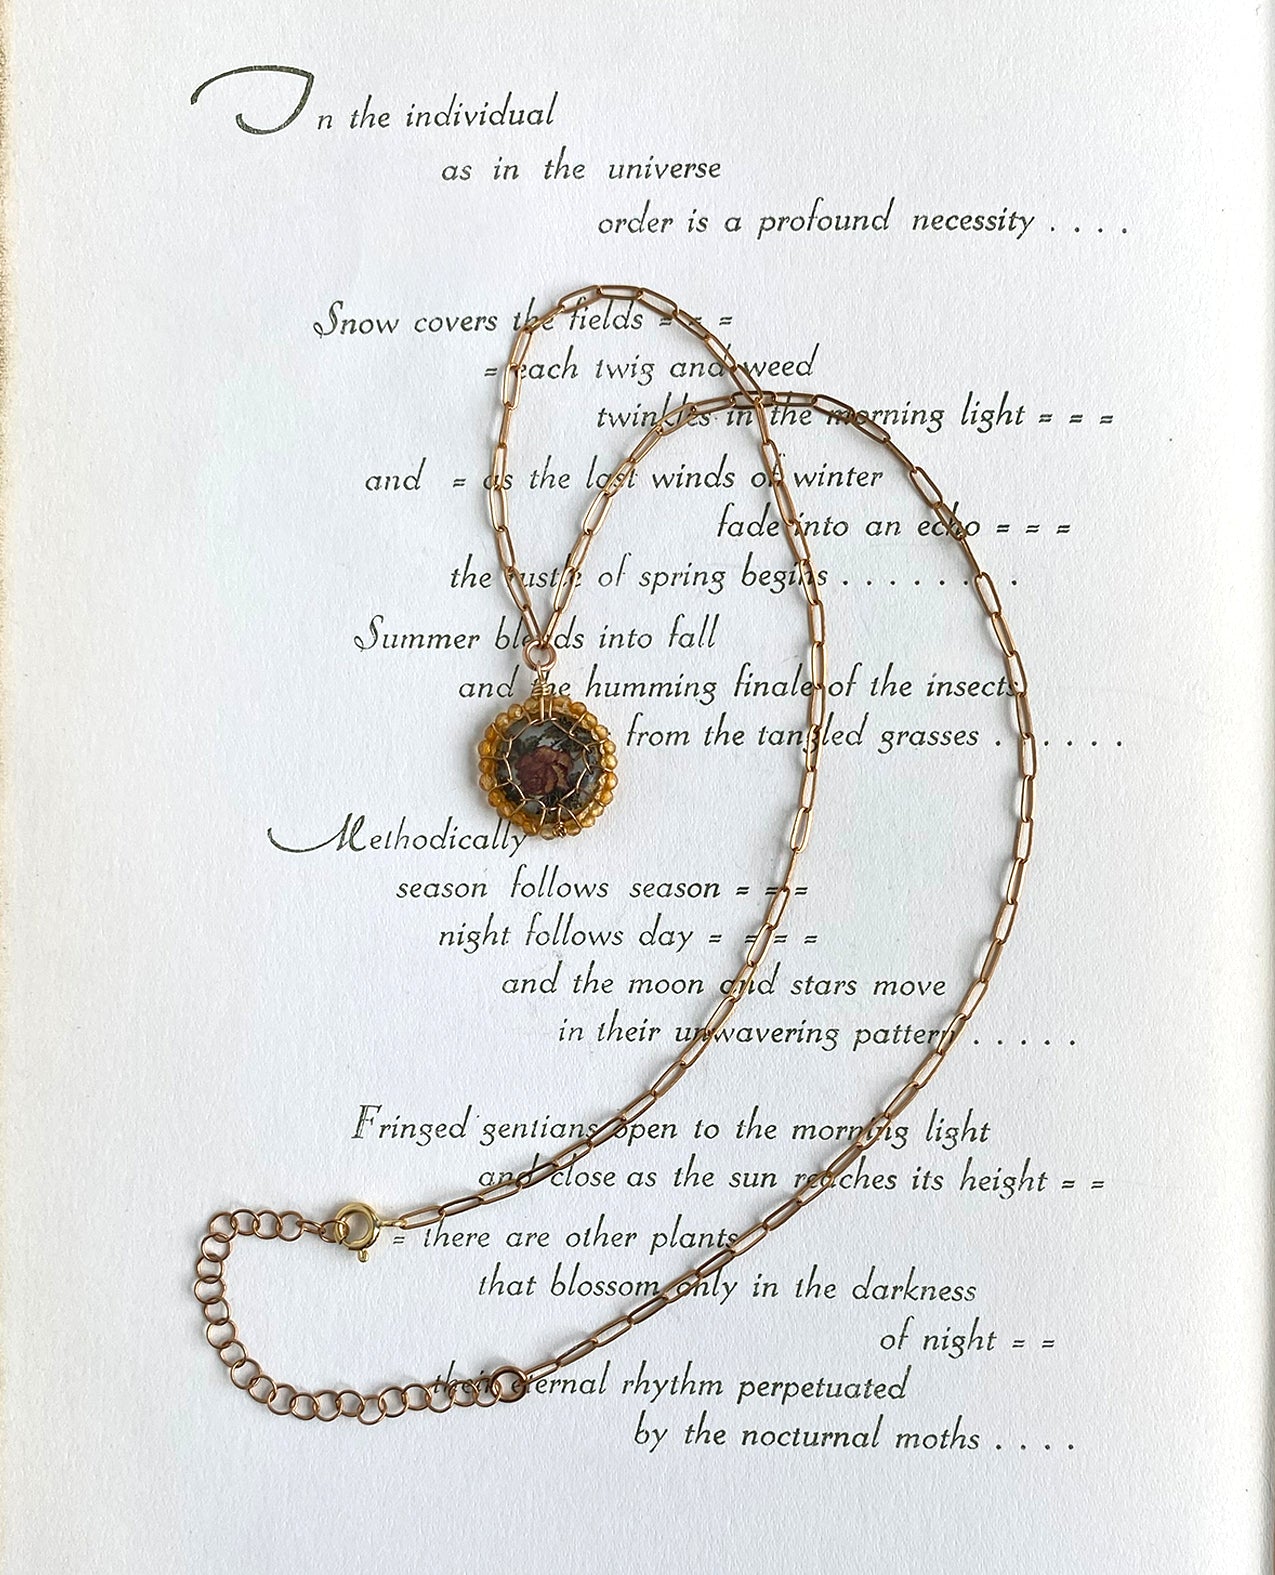 In the individual
as in the universe
order is a profound necessity . . . .
Snow covers the fields = = =
= each twig and weed
twinkles in the morning light = = =
and = as the last winds of winter
fade into an echo = = =
the rustle of spring begins . . . . . . . .
Summer blends into fall
and the humming finale of the insects
from the tangled grasses . . . . . .
Methodically
season follows season = = =
night follows day = = = =
and the moon and stars move
in their unwavering pattern . . . . .
Fringed gentians open to the morning light
and close as the sun reaches its height = =
= there are other plants
that blossom only in the darkness
of night = =
their eternal rhythm perpetuated
by the nocturnal moths . . . .